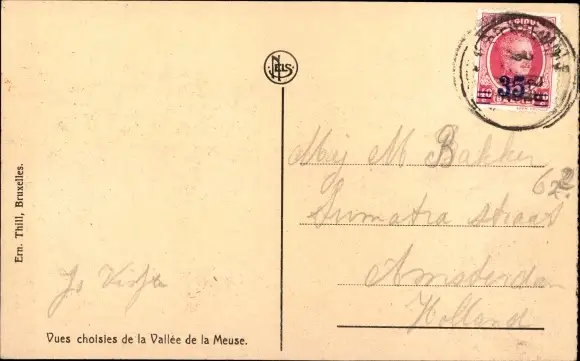 BELGIQUE
35
NELS
Mej M Bakker
62
Sumatra straat
Amsterdam
Holland
Ern. Thill, Bruxelles.
Vues choisies de la Vallée de la Meuse.